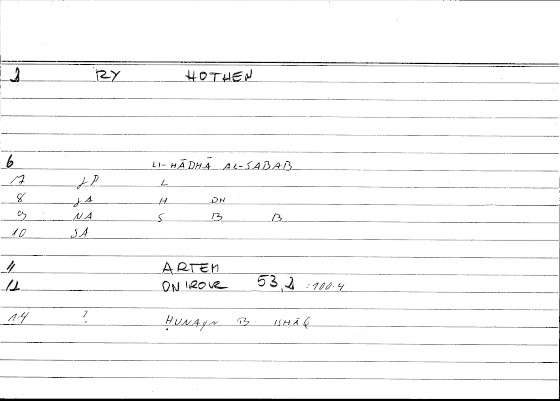 2 RY HOTHEN
6 LI-HĀDHĀ AL-SABAB
7 JP L
8 JA H DH
9 NA S B B
10 SA
11 ARTEM
12 ONIROCR 53,2 :100.4
14 ? ḤUNAYN B. ISḤĀQ